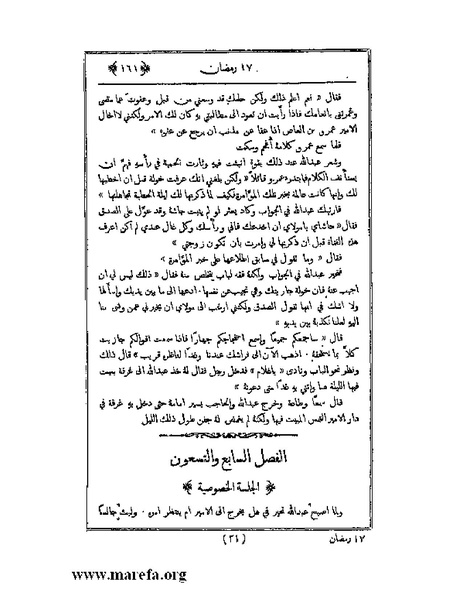 ١٧ رمضان
﴿١٦١﴾
فقال « نعم اعلم ذلك ولكن حلمك قد وسعني من قبل وعفوت عما مضى
وغمرتني بانعامك فاذا رأيت ان تعود الى مطالبتي به كان لك الامر ولكنني لا اخال
الامير عمرو بن العاص اذا عفا عن مذنب ان يرجع عن عفوه »
فلما سمع عمرو كلامه أفحم وسكت
وشعر عبدالله عند ذلك بقوة انبثت فيه وثارت الحمية في رأسه فهم ان
يستأنف الكلام فابتدره عمرو قائلاً « ولكن بلغني انك عرفت خولة قبل ان اخطبها
لك وانها كانت عالمة بخبر تلك المؤامرة فكيف لما ذكرتها لك ليلة الخطبة تجاهلتها »
فارتبك عبدالله في الجواب وكاد يعثر لو لم يثبت جاشه وقد عوّل على الصدق
فقال « حاشاي يا مولاي ان اخدعك فاني ورأسك وكل غال عندي لم اكن اعرف
هذه الفتاة قبل ان ذكرتها لي وامرت بان تكون زوجتي »
فقال « وما تقول في سابق اطلاعها على خبر المؤامرة »
فتحير عبدالله في الجواب ولكنه فقه لباب يتخلص منه فقال « ذلك ليس لي ان
اجيب عنه فان خولة جاريتك وهي تجيب عن نفسها . ادعها الى ما بين يديك واسألها
ولا اشك في انها تقول الصدق ولكنني ارغب الى مولاي ان يخبرني عمن وشى بنا
اليه لعلنا نكذبه بين يديه »
قال « ساجمعكم جميعاً واسمع احتجاجكم جهاراً فاذا سمعت اقوالكم جازيت
كلاً بما يستحقه . اذهب الآن الى فراشك عندنا وغداً لناظره قريب » قال ذلك
ونظر نحو الباب ونادى « يا غلام » فدخل رجل فقال له خذ عبدالله الى غرفة يبيت
فيها الليلة هنا وإتني به غداً متى دعوته »
قال سمعاً وطاعة وخرج عبدالله والحاجب يسير امامه حتى دخل به غرفة في
دار الامير التمس المبيت فيها ولكنه لم يغمض له جفن طول ذلك الليل
الفصل السابع والتسعون
﴿ الجلسة الخصوصية ﴾
ولما اصبح عبدالله تحير في هل يخرج الى الامير ام ينتظر امره . ولبث جالساً
١٧ رمضان
(٢١)
www.marefa.org